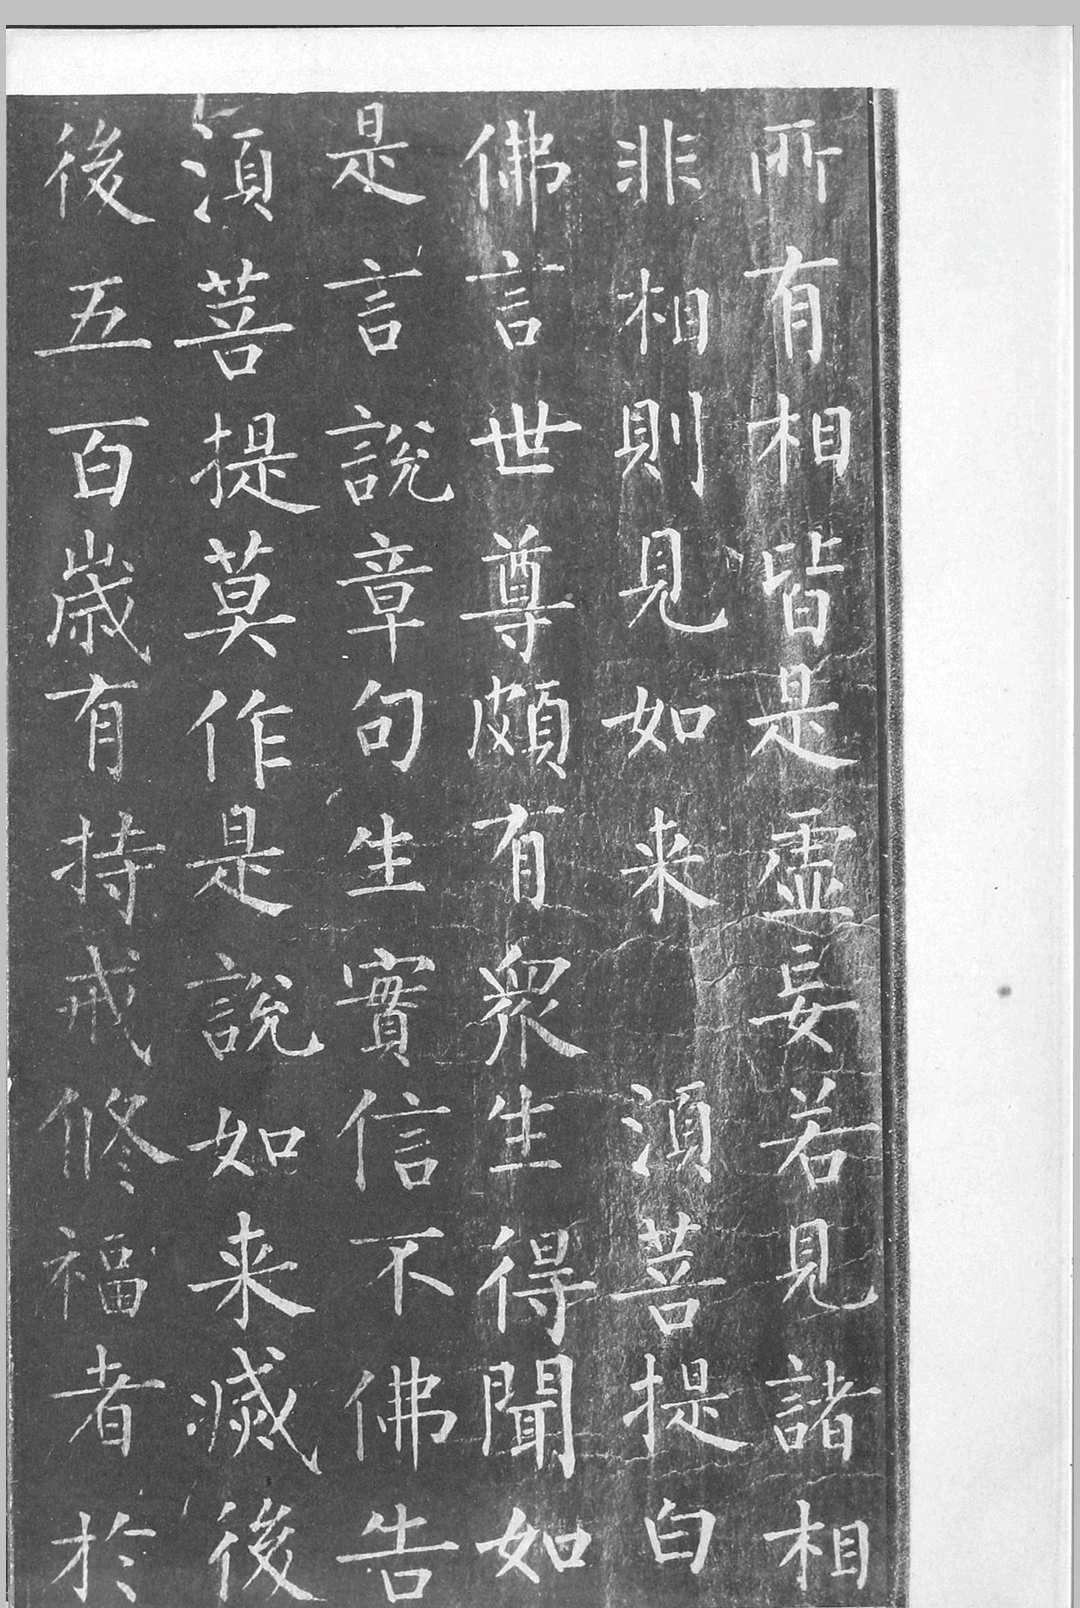 所有相皆是虛妄若見諸相
非相則見如来 須菩提白
佛言世尊頗有眾生得聞如
是言說章句生實信不佛告
須菩提莫作是說如来滅後
後五百歲有持戒修福者於